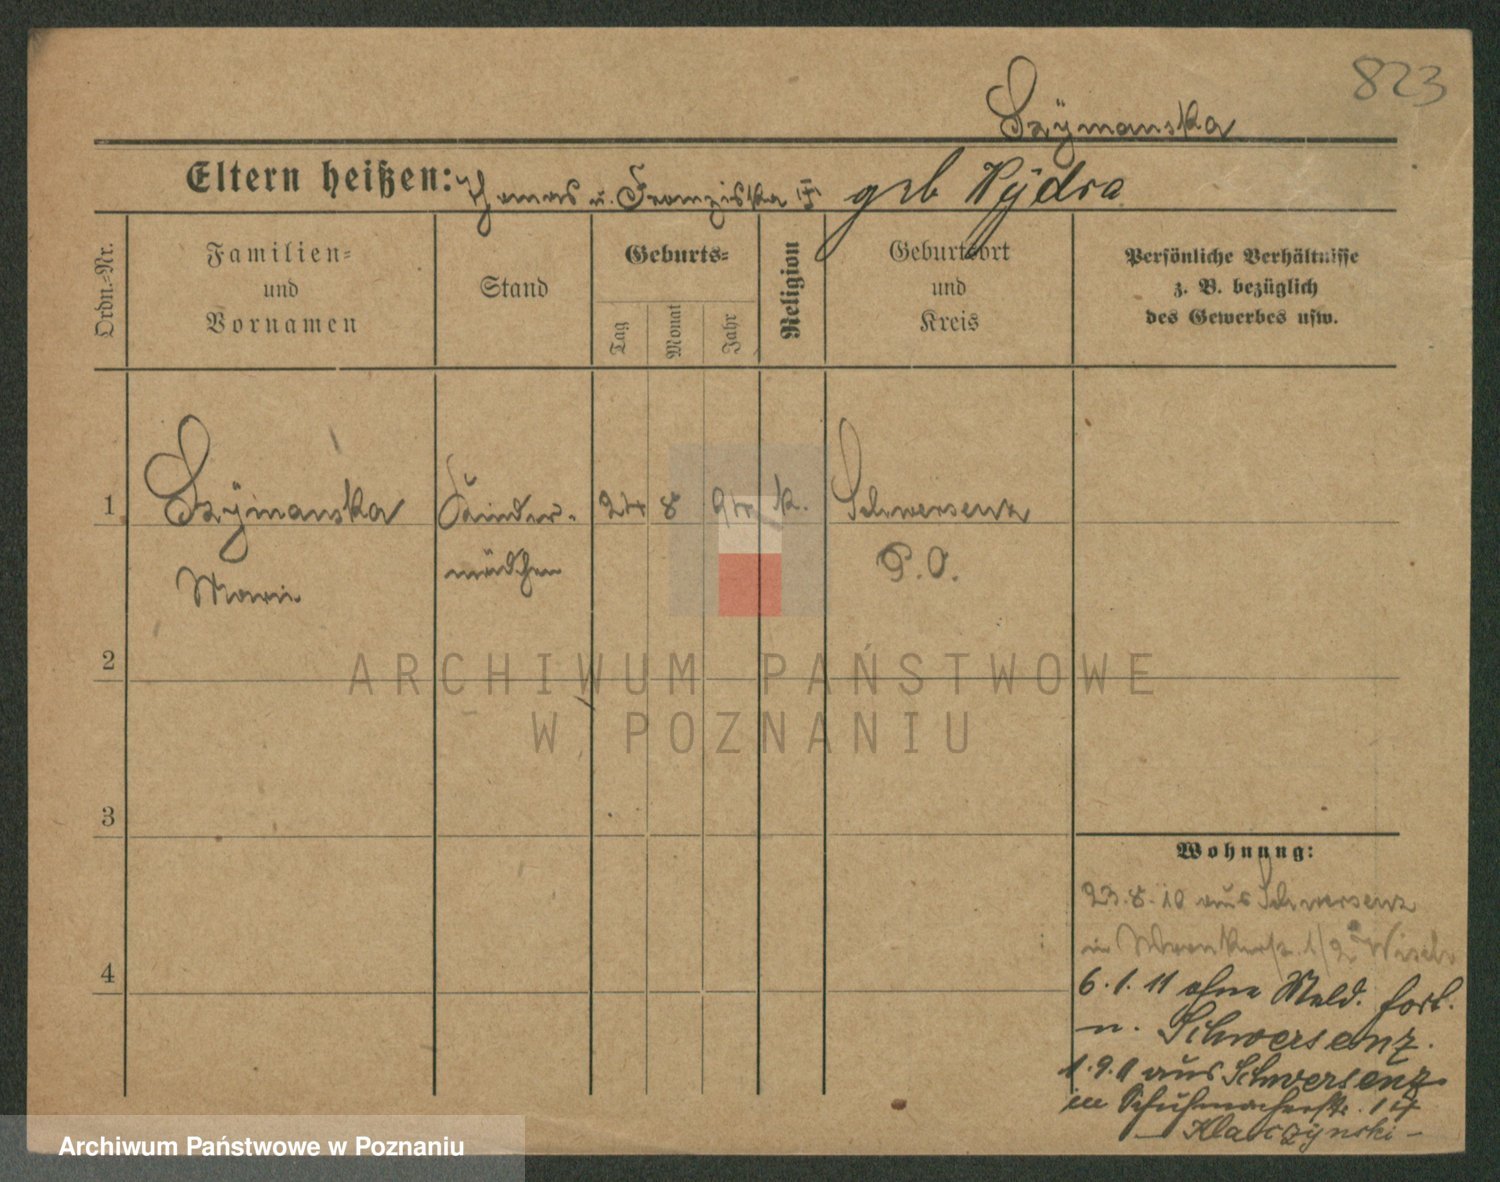 823
Szÿmanska
Eltern heißen: Thomas u. Franziska geb Hÿdra
Ordn.-Nr.
Familien-
und
Vornamen
Stand
Geburts-
Tag
Monat
Jahr
Religion
Geburtsort
und
Kreis
Persönliche Verhältnisse
z. B. bezüglich
des Gewerbes usw.
1 Szÿmanska Kinder- 24 8 94 k. Schwersenz
mädchen P. O.
Marie
2
3
4
Wohnung:
23.8.10 aus Schwersenz
in 1/2
6.1.11 ohne Meld. fort.
n. Schwersenz.
1.9.11 aus Schwersenz
in Schuhmacherstr. 14
– Klaczÿnski –
ARCHIWUM PAŃSTWOWE
W POZNANIU
Archiwum Państwowe w Poznaniu